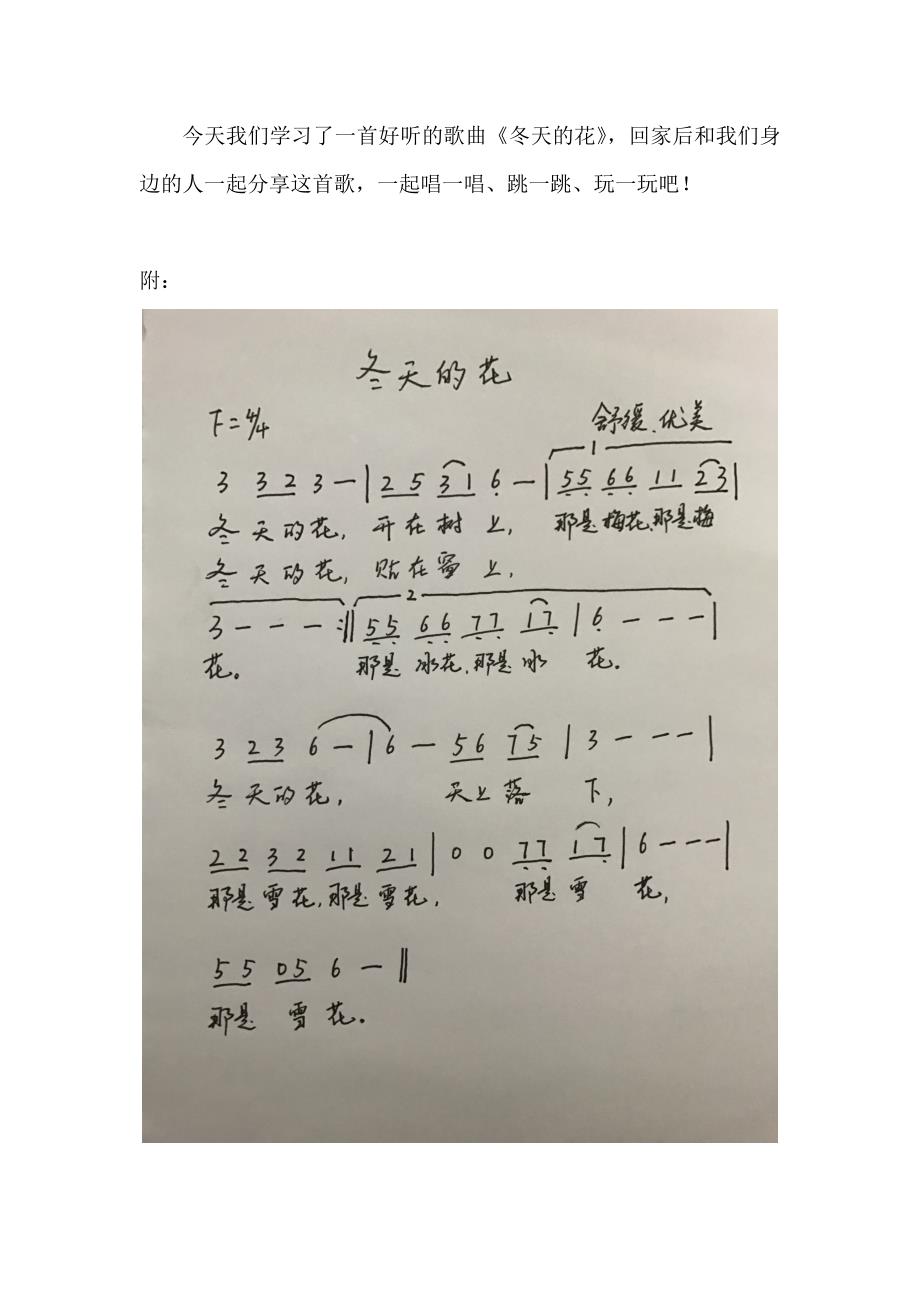 今天我们学习了一首好听的歌曲《冬天的花》，回家后和我们身
边的人一起分享这首歌，一起唱一唱、跳一跳、玩一玩吧！
附：
冬天的花
下=4/4 舒缓、优美
1
3 3 2 3 — | 2 5 3 1 6 — | 5 5 6 6 1 1 2 3 |
冬 天的花，开在树上，那是梅花，那是梅
冬 天的花，贴在窗上，
2
3 — — — :‖ 5 5 6 6 7 7 1 7 | 6 — — — |
花。 那是冰花，那是冰 花。
3 2 3 6 — | 6 — 5 6 7 5 | 3 — — — |
冬 天的花， 天上落 下，
2 2 3 2 1 1 2 1 | 0 0 7 7 1 7 | 6 — — — |
那是雪花，那是雪花， 那是雪 花，
5 5 0 5 6 — ‖
那是 雪花。